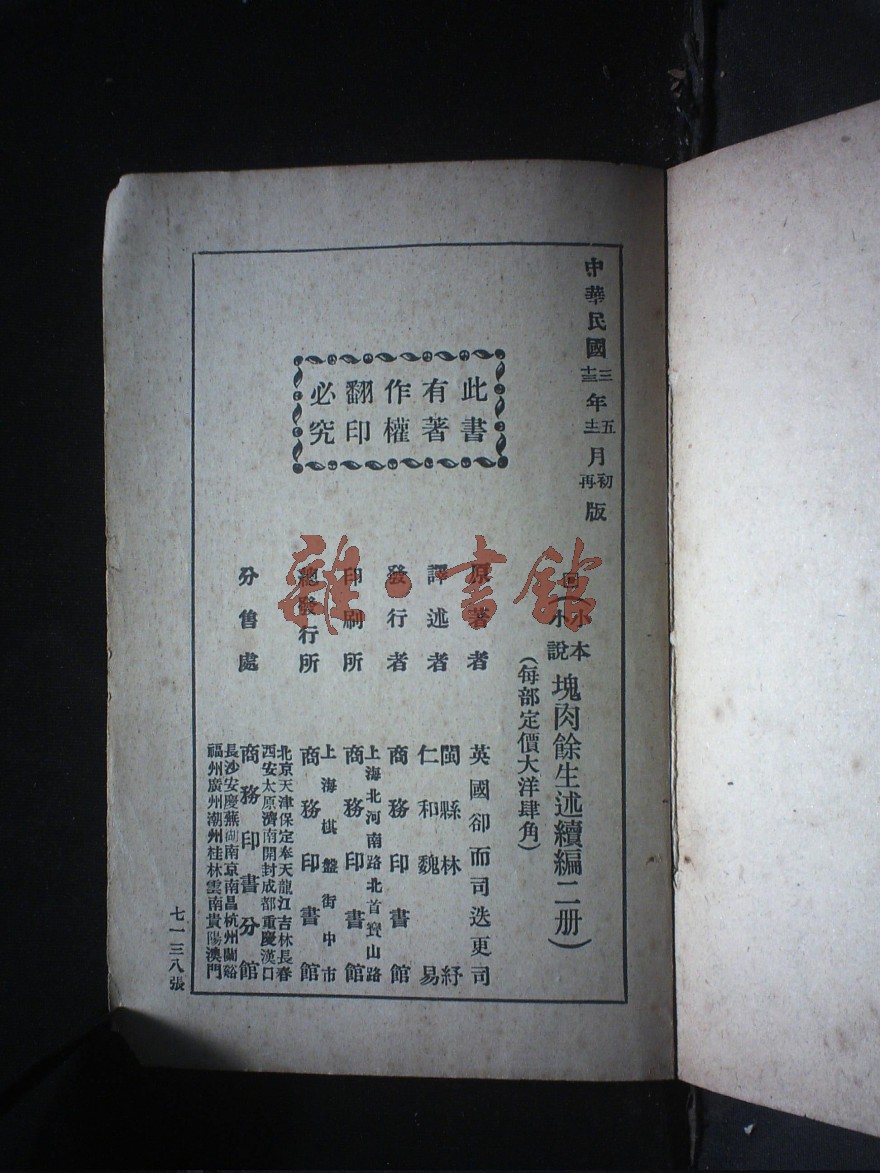 中華民國三年五月初版
十三年十二月再版
此書
有著
作權
翻印
必究
小本
小說
塊肉餘生述續編二册)
(每部定價大洋肆角)
原著者 英國卻而司迭更司
譯述者 閩縣林紓
仁和魏易
發行者 商務印書館
印刷所 上海北河南路北首寶山路
商務印書館
總發行所 上海棋盤街中市
商務印書館
分售處 北京天津保定奉天龍江吉林長春
西安太原濟南開封成都重慶漢口
商務印書分館
長沙安慶蕪湖南京南昌杭州蘭谿
福州廣州潮州桂林雲南貴陽澳門
七一三八張
雜·書館